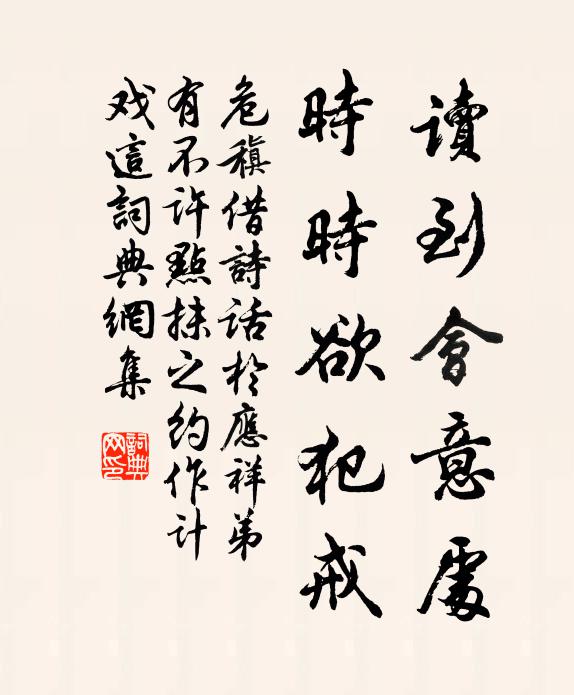 讀到會意處
時時欲犯戒
危稹借詩話於應祥弟
有不許點抹之約作計
戏這詞典網集
詞典
网印